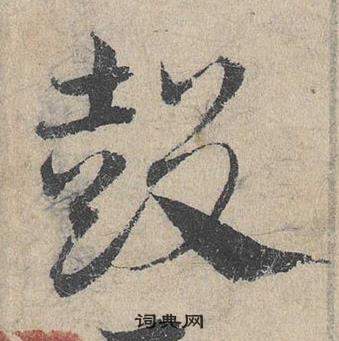 鼓
词典网